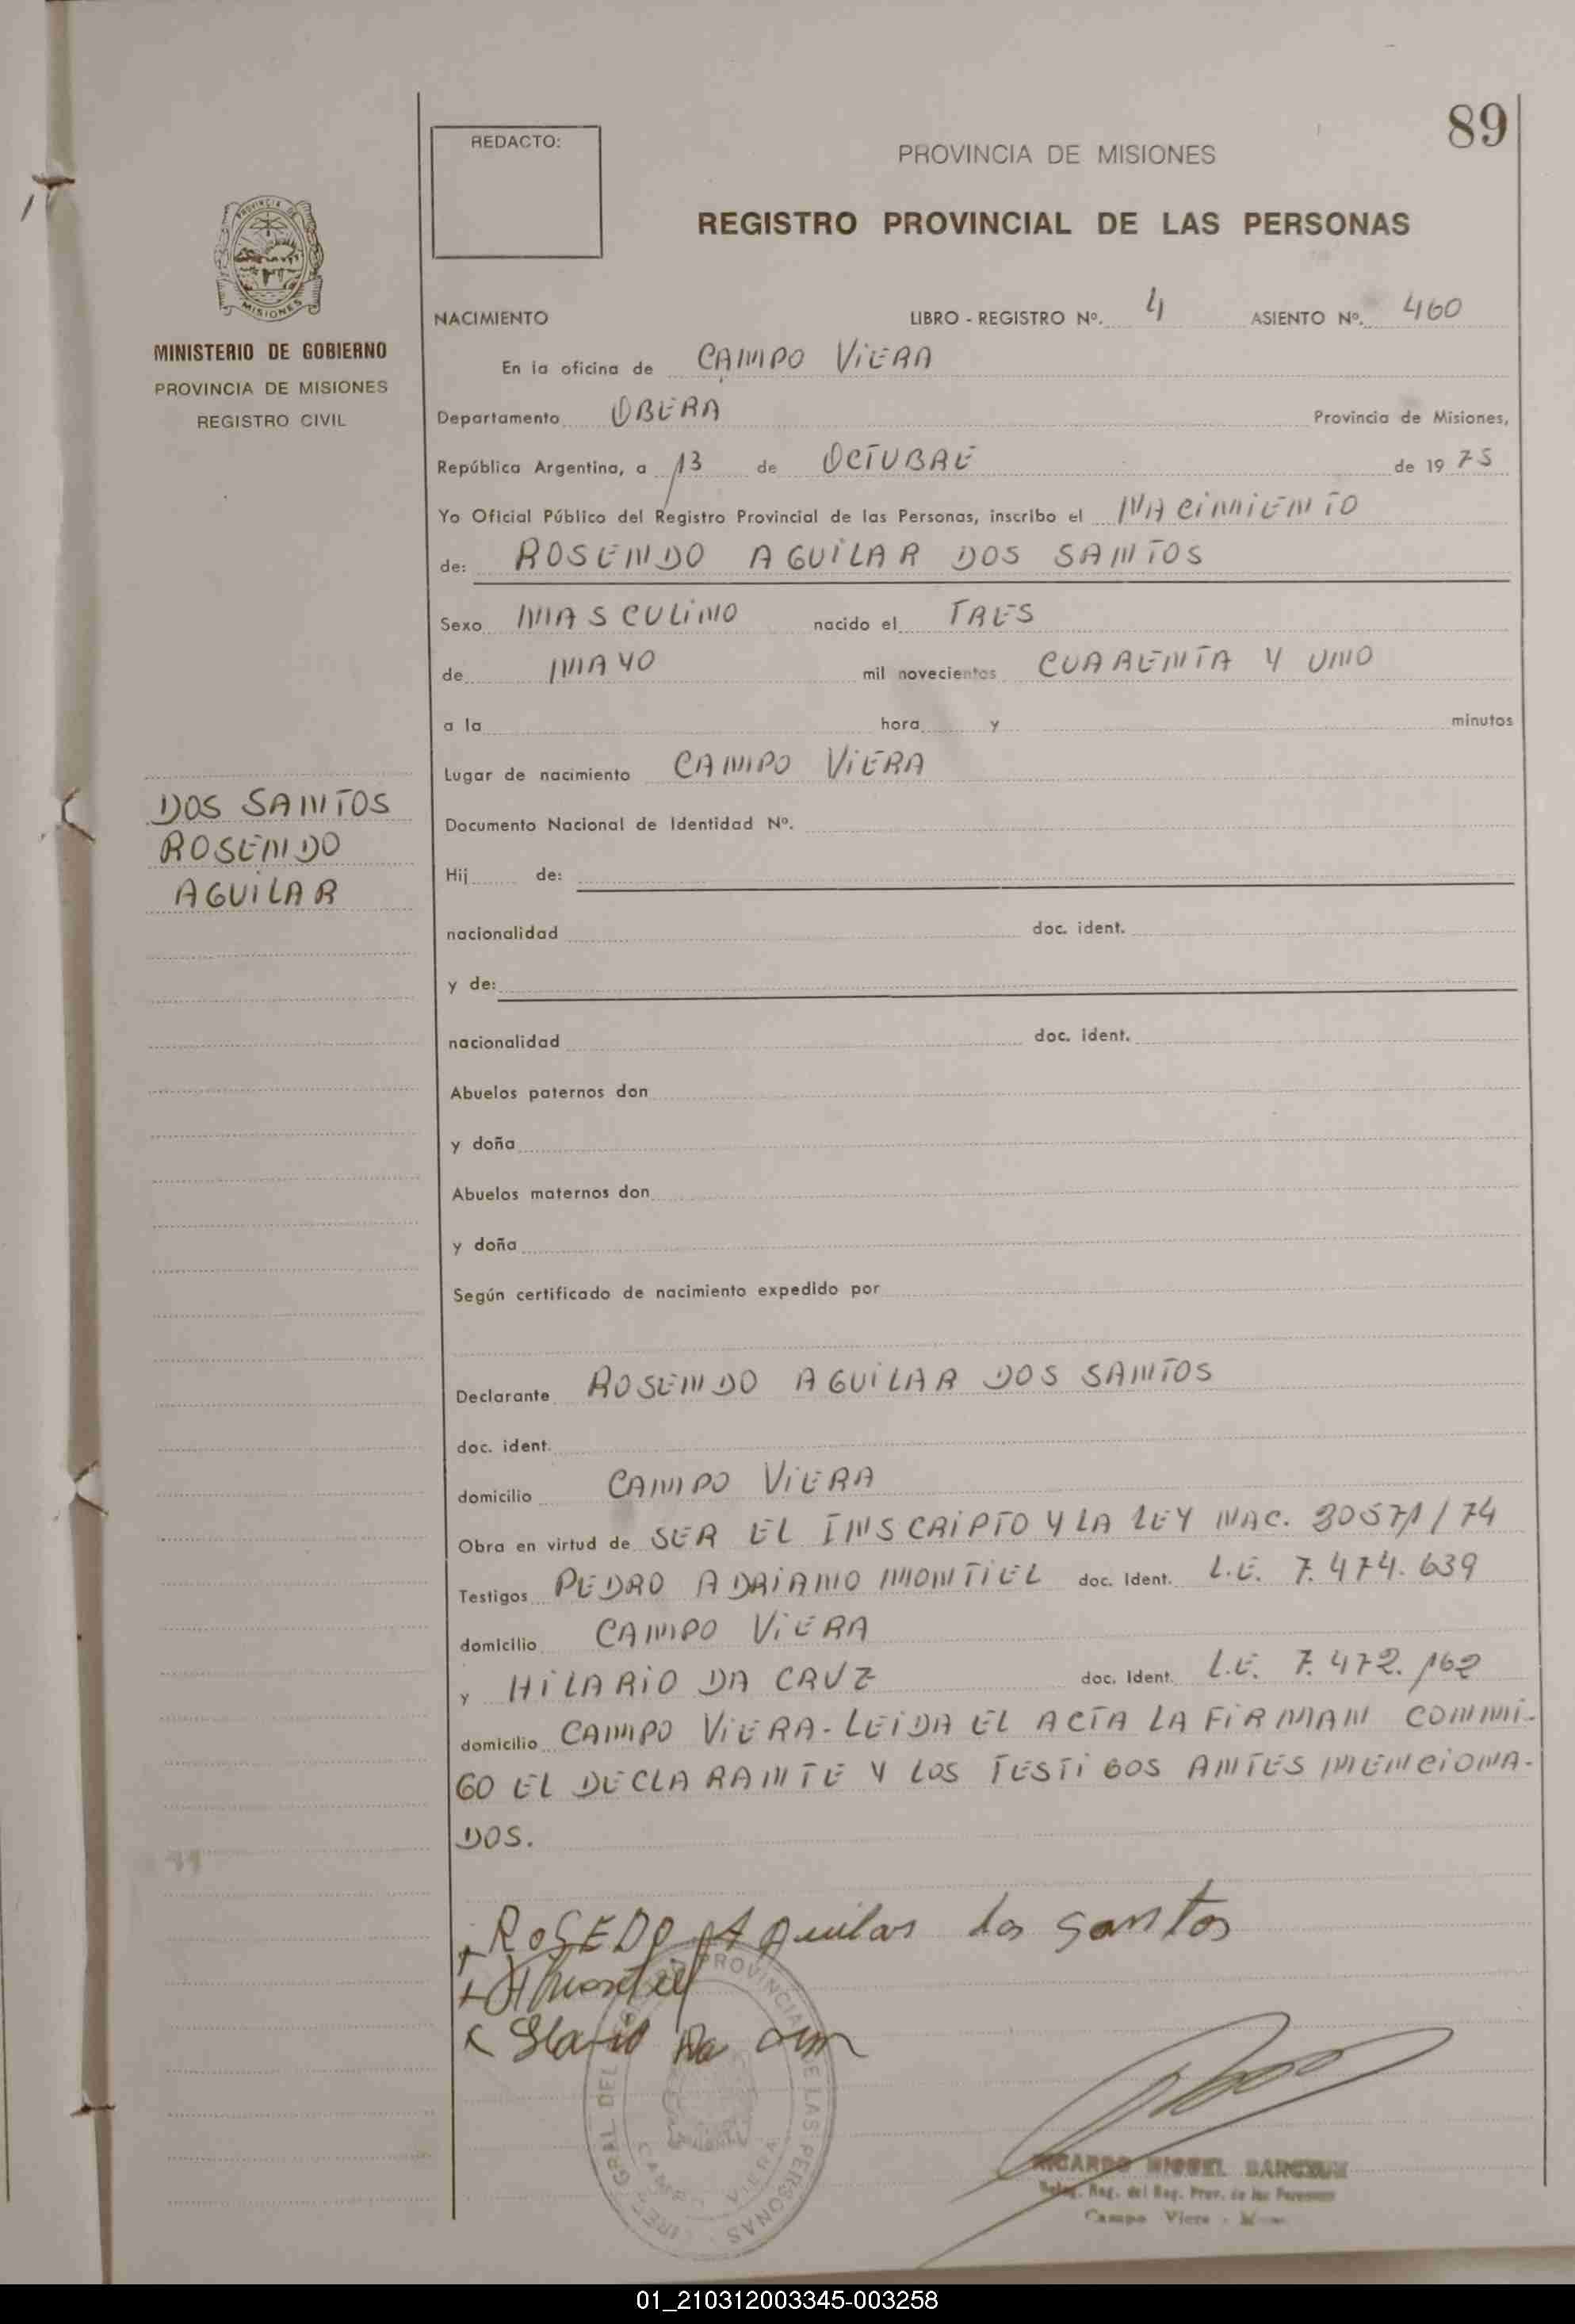 89
REDACTO:
PROVINCIA DE MISIONES
REGISTRO PROVINCIAL DE LAS PERSONAS
PROVINCIA DE
MISIONES
MINISTERIO DE GOBIERNO
PROVINCIA DE MISIONES
REGISTRO CIVIL
NACIMIENTO LIBRO - REGISTRO Nº. 4 ASIENTO Nº. 460
En la oficina de CAMPO VIERA
Departamento OBERA Provincia de Misiones,
República Argentina, a 13 de OCTUBRE de 19 75
Yo Oficial Público del Registro Provincial de las Personas, inscribo el NACIMIENTO
de: ROSENDO AGUILAR DOS SANTOS
Sexo MASCULINO nacido el TRES
de MAYO mil novecientos CUARENTA Y UNO
a la hora y minutos
Lugar de nacimiento CAMPO VIERA
DOS SANTOS
ROSENDO
AGUILAR
Documento Nacional de Identidad Nº.
Hij de:
nacionalidad doc. ident.
y de:
nacionalidad doc. ident.
Abuelos paternos don
y doña
Abuelos maternos don
y doña
Según certificado de nacimiento expedido por
Declarante ROSENDO AGUILAR DOS SANTOS
doc. ident.
domicilio CAMPO VIERA
Obra en virtud de SER EL INSCRIPTO Y LA LEY NAC. 20571/74
Testigos PEDRO ADRIANO MONTIEL doc. Ident. L.E. 7.474.639
domicilio CAMPO VIERA
y HILARIO DA CRUZ doc. Ident. L.E. 7.472.162
domicilio CAMPO VIERA-LEIDA EL ACTA LA FIRMAN CONMI-
GO EL DECLARANTE Y LOS TESTIGOS ANTES MENCIONA-
DOS.
ROSEDO A Aguilar dos Santos
A Montiel
PROVINCIAL DE LAS PERSONAS
GRAL DEL
CAMPO VIERA
RICARDO MIGUEL
Reg. del Reg. Prov. de las Personas
Campo Viera
01_210312003345-003258